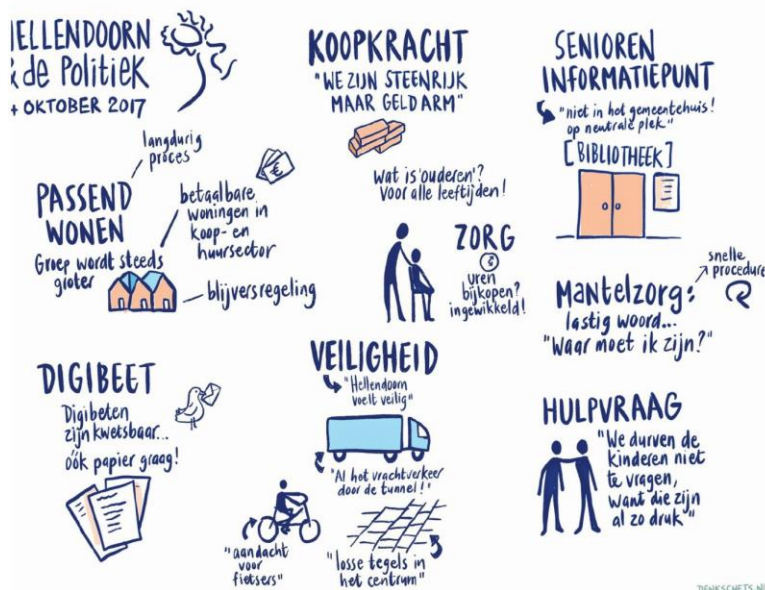 HELLENDOORN
& de Politiek
4 OKTOBER 2017
PASSEND
WONEN
Groep wordt steeds
groter
langdurig
proces
betaalbare
woningen in
koop- en
huursector
blijversregeling
DIGIBEET
Digibeten
zijn kwetsbaar...
óók papier graag!
KOOPKRACHT
"WE ZIJN STEENRIJK
MAAR GELD ARM"
wat is 'ouderen'?
voor alle leeftijden!
ZORG
uren
bijkopen?
ingewikkeld!
VEILIGHEID
"Hellendoorn
voelt veilig"
"Al het vrachtverkeer
door de tunnel!"
"aandacht
voor
fietsers"
"losse tegels in
het centrum"
SENIOREN
INFORMATIEPUNT
"niet in het gemeentehuis!
op neutrale plek"
[BIBLIOTHEEK]
Mantelzorg:
lastig woord...
"Waar moet ik zijn?"
snelle
procedure
HULPVRAAG
"We durven de
kinderen niet
te vragen,
want die zijn
al zo druk"
DENKSCHETS.NL